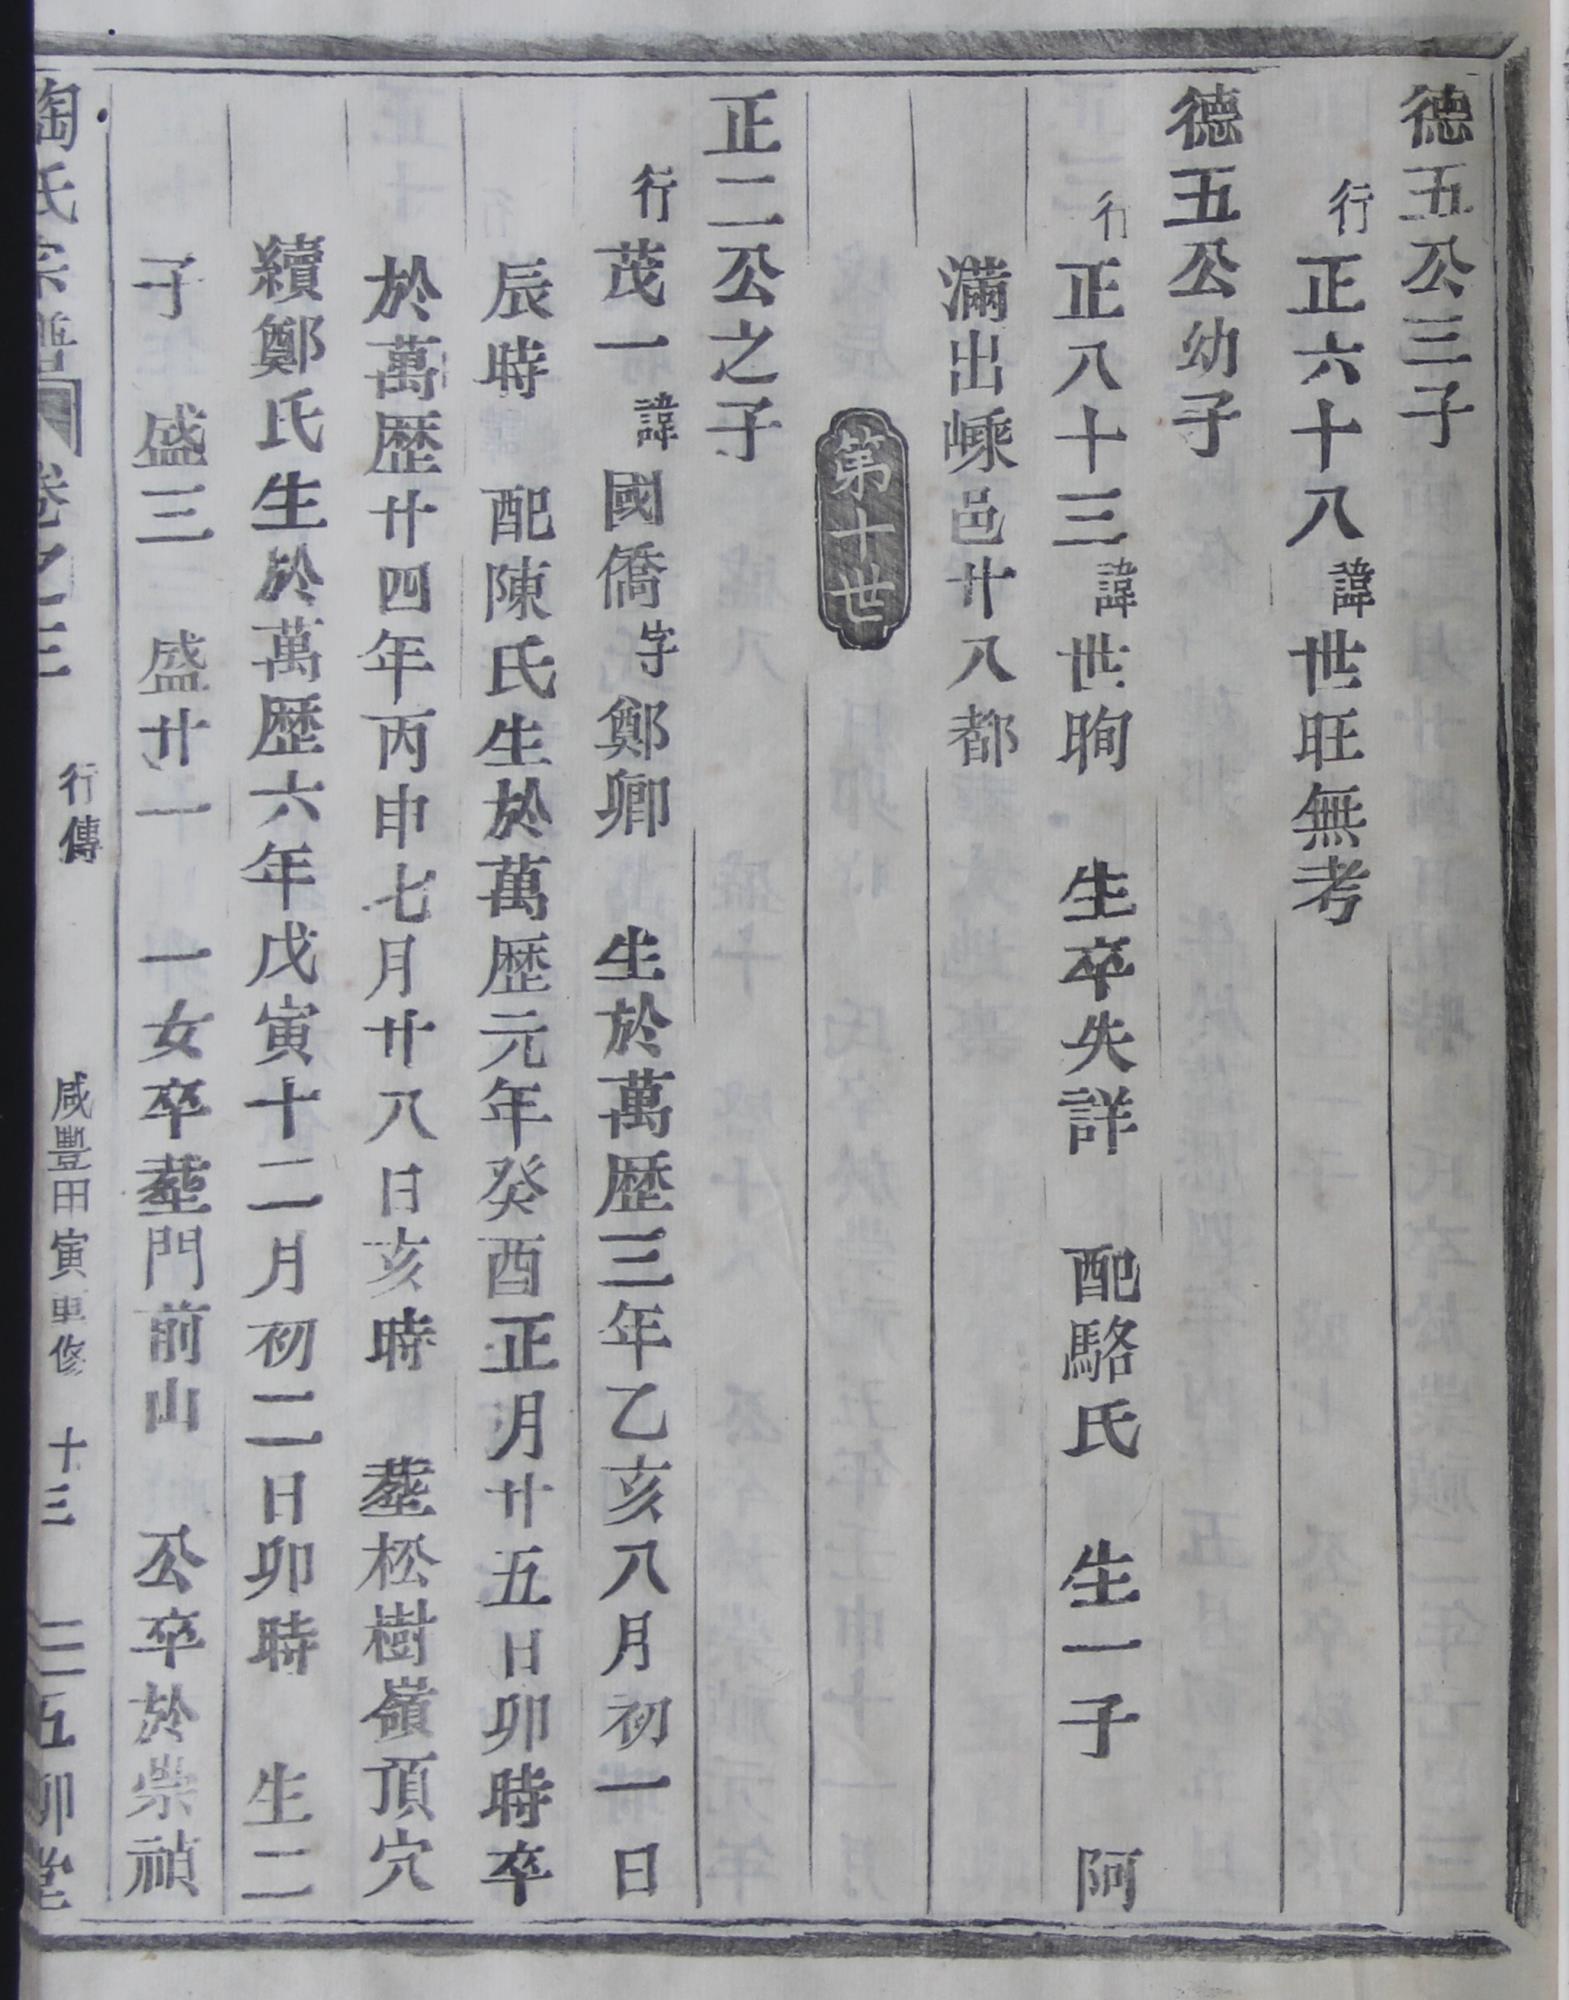 德五公三子
行正六十八諱世旺無考
德五公幼子
行正八十三諱世晌 生卒失詳 配駱氏 生一子 阿
滿出嵊邑廿八都
第十世
正二公之子
行茂一諱國僑字鄭卿 生於萬歷三年乙亥八月初一日
辰時 配陳氏生於萬歷元年癸酉正月廿五日卯時卒
於萬歷廿四年丙申七月廿八日亥時 塟松樹嶺頂穴
續鄭氏生於萬歷六年戊寅十二月初二日卯時 生二
子 盛三 盛廿一 一女卒塟門前山 公卒於崇禎
陶氏宗譜 卷之三 行傳 咸豐甲寅重修 十三 五柳堂